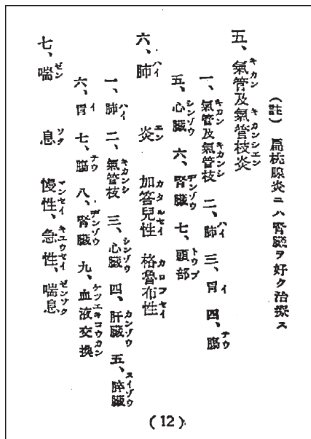 (註) 扁桃腺炎ニハ腎臓ヲ好ク治療ス
五、氣管及氣管枝炎
一、氣管及氣管枝 二、肺 三、胃 四、腦
五、心臓 六、腎臓 七、頭部
六、肺炎 加答兒性 格魯布性
一、肺 二、氣管枝 三、心臓 四、肝臓 五、脾臓
六、胃 七、腦 八、腎臓 九、血液交換
七、喘息 慢性、急性、喘息
(12)